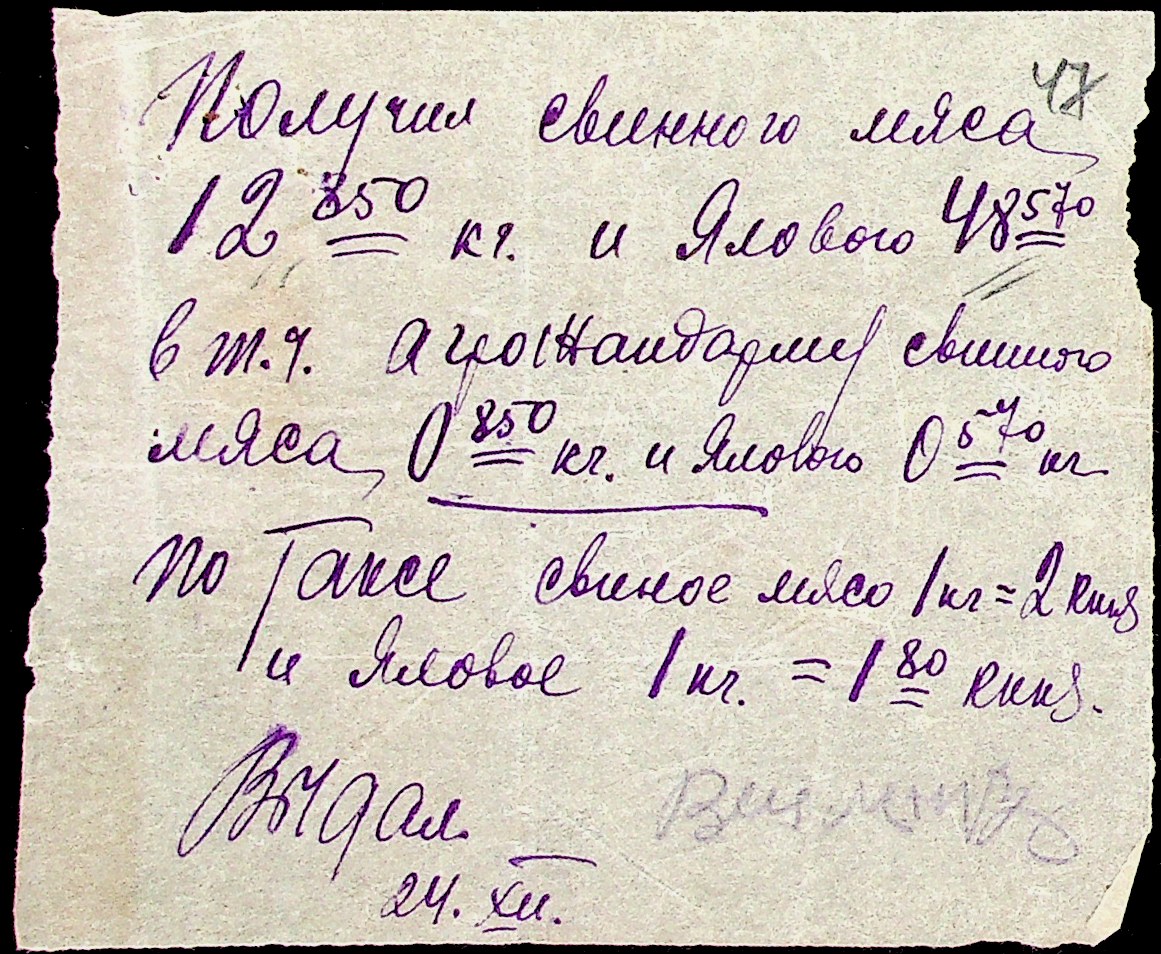 47
Получил свинного мяса
12 850 кг. и Ялового 48 570
в т.ч. агрожандарму свинного
мяса 0 850 кг. и Ялового 0 570 кг
по Таксе свиное мясо 1 кг = 2
и Яловое 1 кг. = 1 80
Выдал
24. XII.